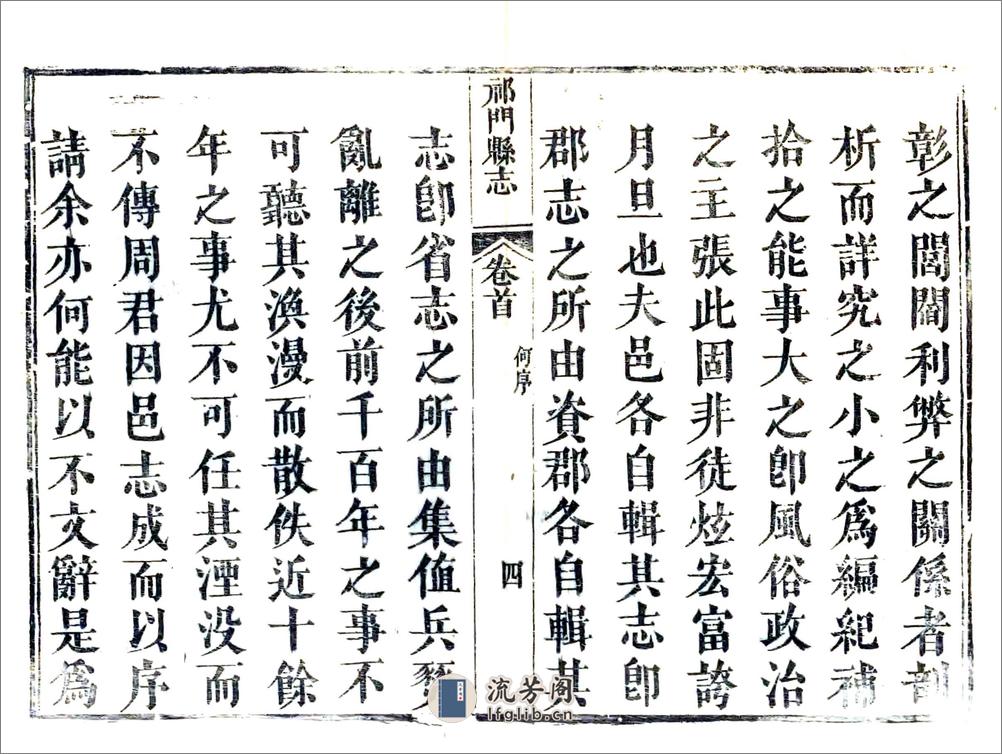 彰之閭閻利弊之關係者剖
析而詳究之小之爲編紀補
拾之能事大之卽風俗政治
之主張此固非徒炫宏富誇
月旦也夫邑各自輯其志卽
郡志之所由資郡各自輯其
祁門縣志
卷首
何序
四
志卽省志之所由集值兵燹
亂離之後前千百年之事不
可聽其渙漫而散佚近十餘
年之事尤不可任其湮没而
不傳周君因邑志成而以序
請余亦何能以不文辭是爲
流芳阁
lfglib.cn